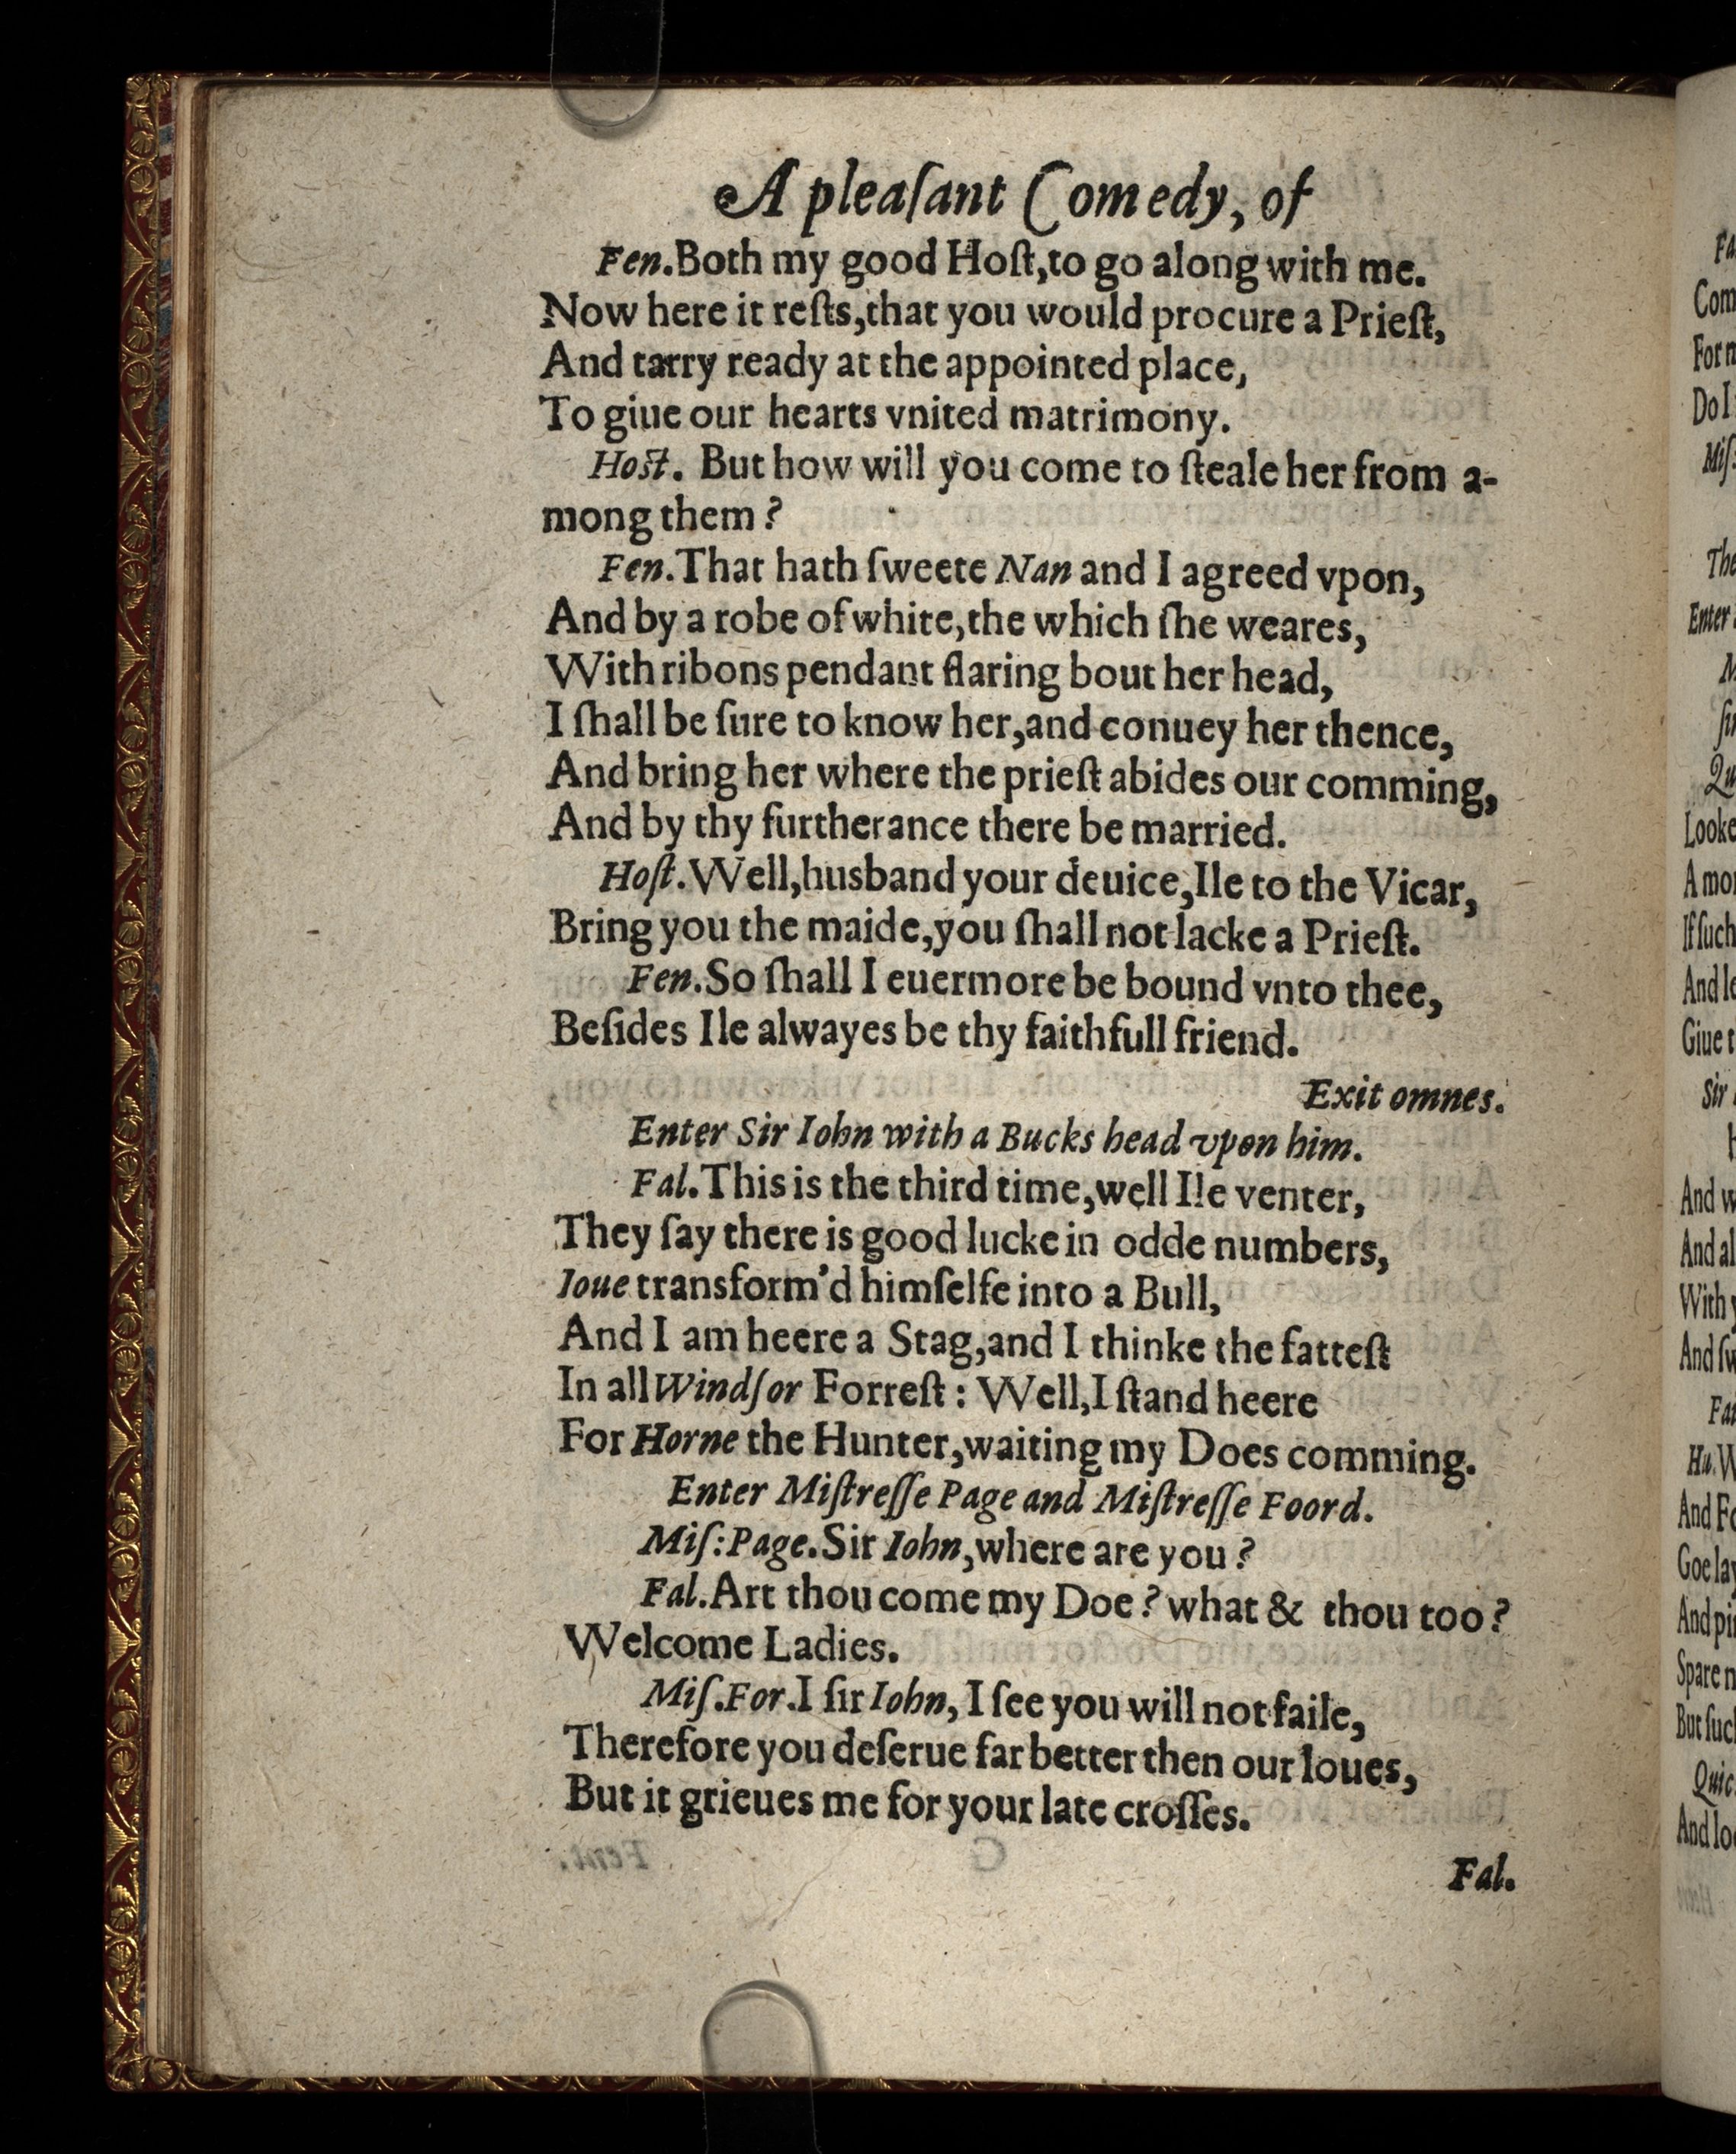 A pleaſant Comedy, of
Fen. Both my good Hoſt, to go along with me.
Now here it reſts, that you would procure a Prieſt,
And tarry ready at the appointed place,
To giue our hearts vnited matrimony.
Hoſt. But how will you come to ſteale her from a-
mong them?
Fen. That hath ſweete Nan and I agreed vpon,
And by a robe of white, the which ſhe weares,
With ribons pendant flaring bout her head,
I ſhall be ſure to know her, and conuey her thence,
And bring her where the prieſt abides our comming,
And by thy furtherance there be married.
Hoſt. Well, husband your deuice, Ile to the Vicar,
Bring you the maide, you ſhall not lacke a Prieſt.
Fen. So ſhall I euermore be bound vnto thee,
Beſides Ile alwayes be thy faithfull friend.
Exit omnes.
Enter Sir Iohn with a Bucks head vpon him.
Fal. This is the third time, well Ile venter,
They ſay there is good lucke in odde numbers,
Ioue transform'd himſelfe into a Bull,
And I am heere a Stag, and I thinke the fatteſt
In all Windſor Forreſt: Well, I ſtand heere
For Horne the Hunter, waiting my Does comming.
Enter Miſtreſſe Page and Miſtreſſe Foord.
Miſ: Page. Sir Iohn, where are you?
Fal. Art thou come my Doe? what & thou too?
Welcome Ladies.
Miſ. For. I ſir Iohn, I ſee you will not faile,
Therefore you deſerue far better then our loues,
But it grieues me for your late croſſes.
Fal.
Com
For
Do I
Miſ:
The
Enter
Qu
Looke
A mo
If ſuch
And le
Giue t
Sir
And w
And al
With y
And ſw
Hu. W
And Fo
Goe lay
And pi
Spare n
But ſuc
Quic.
And loo